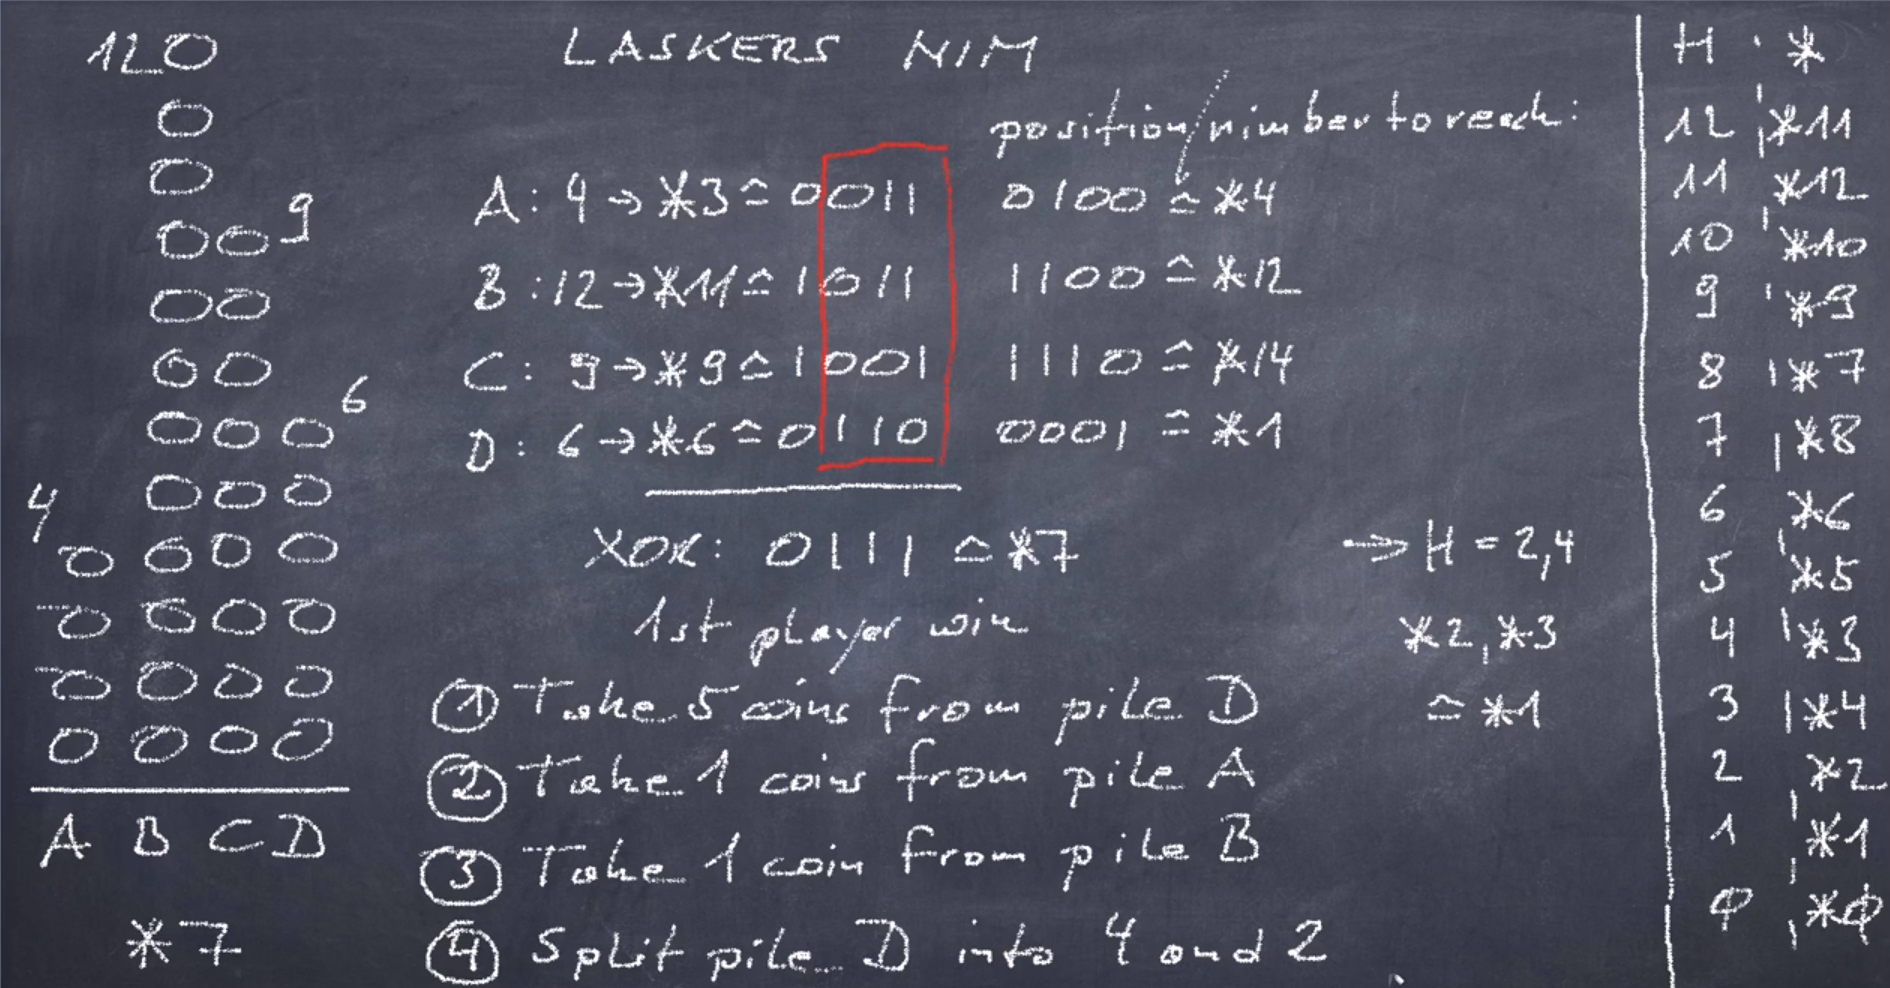 LASKERS NIM
12
9
6
4
A B C D
*7
position/nimber to reach:
A: 4 → *3 ≙ 0011 0100 ≙ *4
B: 12 → *11 ≙ 1011 1100 ≙ *12
C: 9 → *9 ≙ 1001 1110 ≙ *14
D: 6 → *6 ≙ 0110 0001 ≙ *1
XOR: 0111 ≙ *7
1st player win
→ H = 2,4
*2, *3
≙ *1
① Take 5 coins from pile D
② Take 1 coins from pile A
③ Take 1 coin from pile B
④ Split pile D into 4 and 2
H *
12 *11
11 *12
10 *10
9 *9
8 *7
7 *8
6 *6
5 *5
4 *3
3 *4
2 *2
1 *1
0 *0